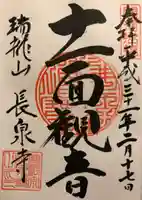 奉拝 平成三十一年二月十七日
十一面観音
瑞龍山
長泉寺